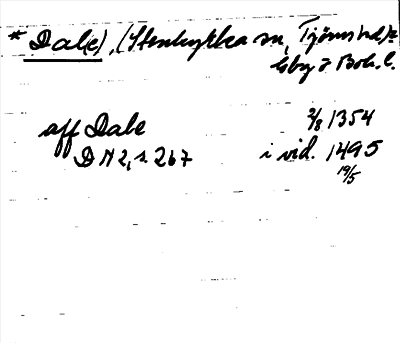 * Dal(e), (Stenkyrka sn, Tjörns hd)?
Eby? Boh. l.
aff Dale 2/8 1354
DN 2, s. 267 i vid. 1495
19/5